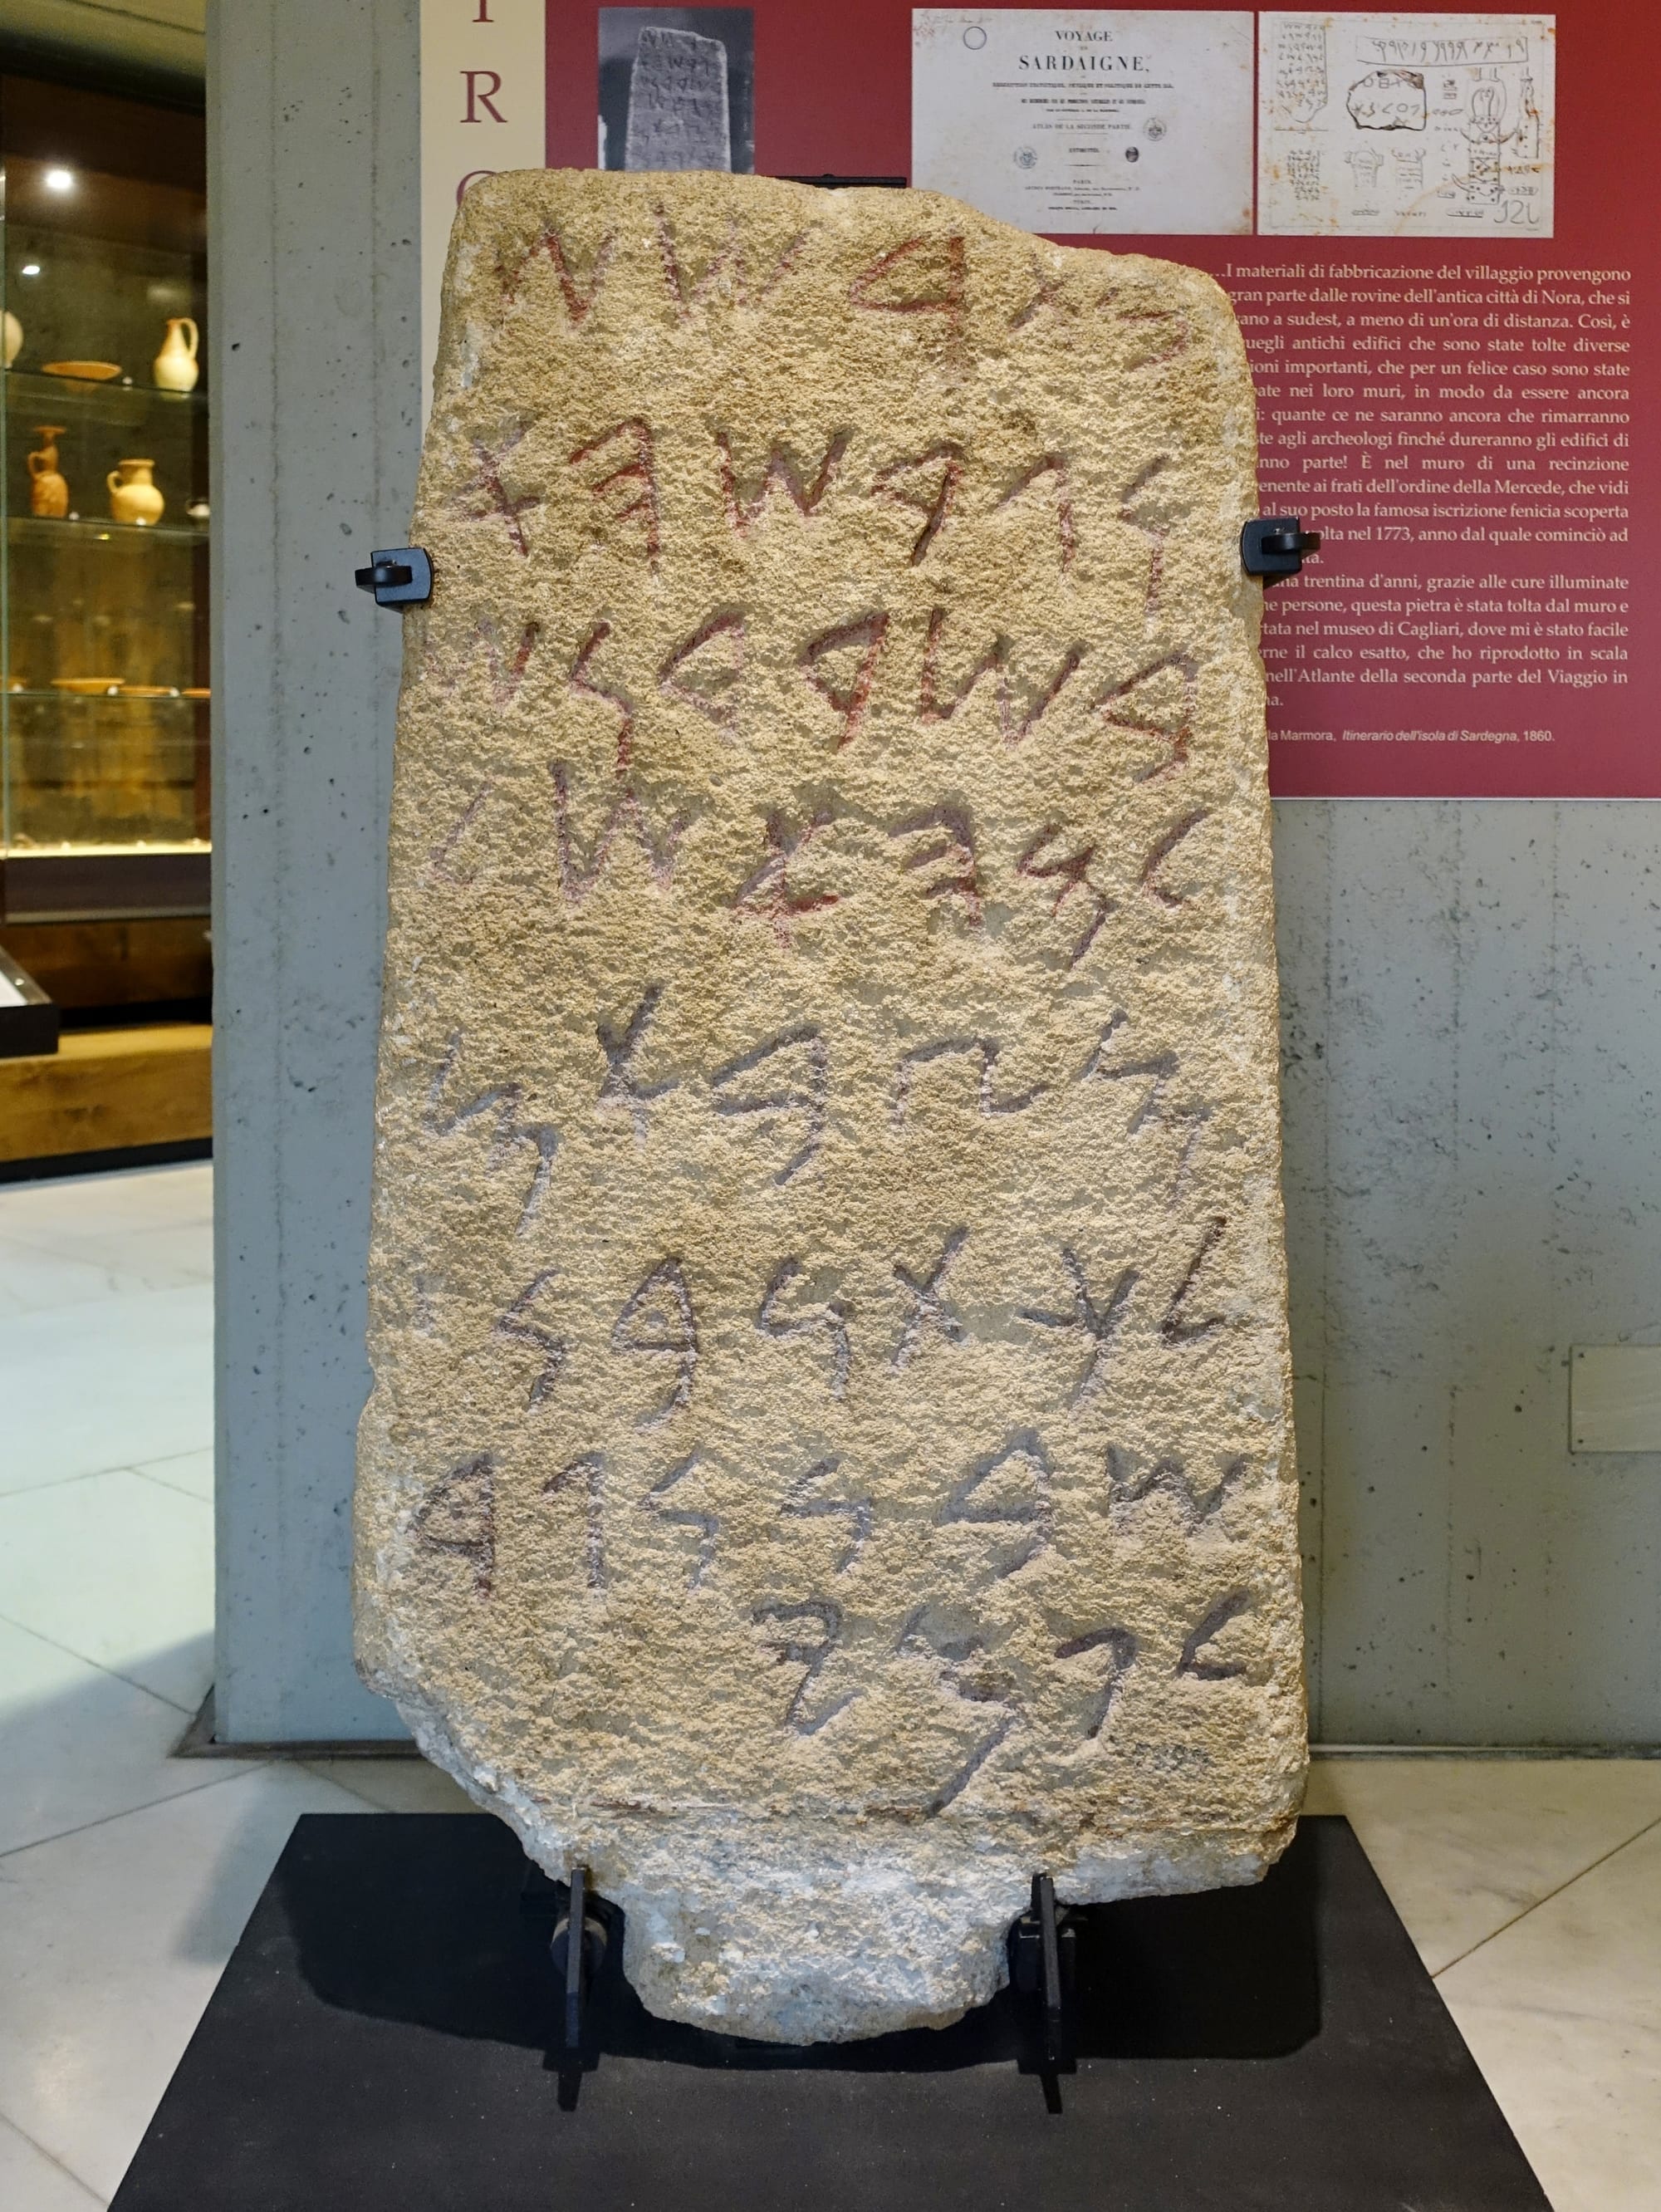 𐤁𐤕𐤓𐤔𐤔
𐤅𐤂𐤓𐤔𐤄𐤀
𐤁𐤔𐤓𐤃𐤍𐤔
𐤋𐤌𐤄𐤀𐤔𐤋
𐤌𐤑𐤁𐤀𐤌
𐤋𐤊𐤕𐤍𐤁𐤍
𐤔𐤁𐤍𐤍𐤂𐤃
𐤋𐤐𐤌𐤉
VOYAGE
SARDAIGNE,
ATLAS DE LA SECONDE PARTIE.
PARIS
...I materiali di fabbricazione del villaggio provengono
gran parte dalle rovine dell'antica città di Nora, che si
a sudest, a meno di un'ora di distanza. Così, è
antichi edifici che sono state tolte diverse
importanti, che per un felice caso sono state
nei loro muri, in modo da essere ancora
quante ce ne saranno ancora che rimarranno
agli archeologi finché dureranno gli edifici di
parte! È nel muro di una recinzione
ai frati dell'ordine della Mercede, che vidi
al suo posto la famosa iscrizione fenicia scoperta
nel 1773, anno dal quale cominciò ad
trentina d'anni, grazie alle cure illuminate
persone, questa pietra è stata tolta dal muro e
nel museo di Cagliari, dove mi è stato facile
il calco esatto, che ho riprodotto in scala
nell'Atlante della seconda parte del Viaggio in
la Marmora, Itinerario dell'isola di Sardegna, 1860.